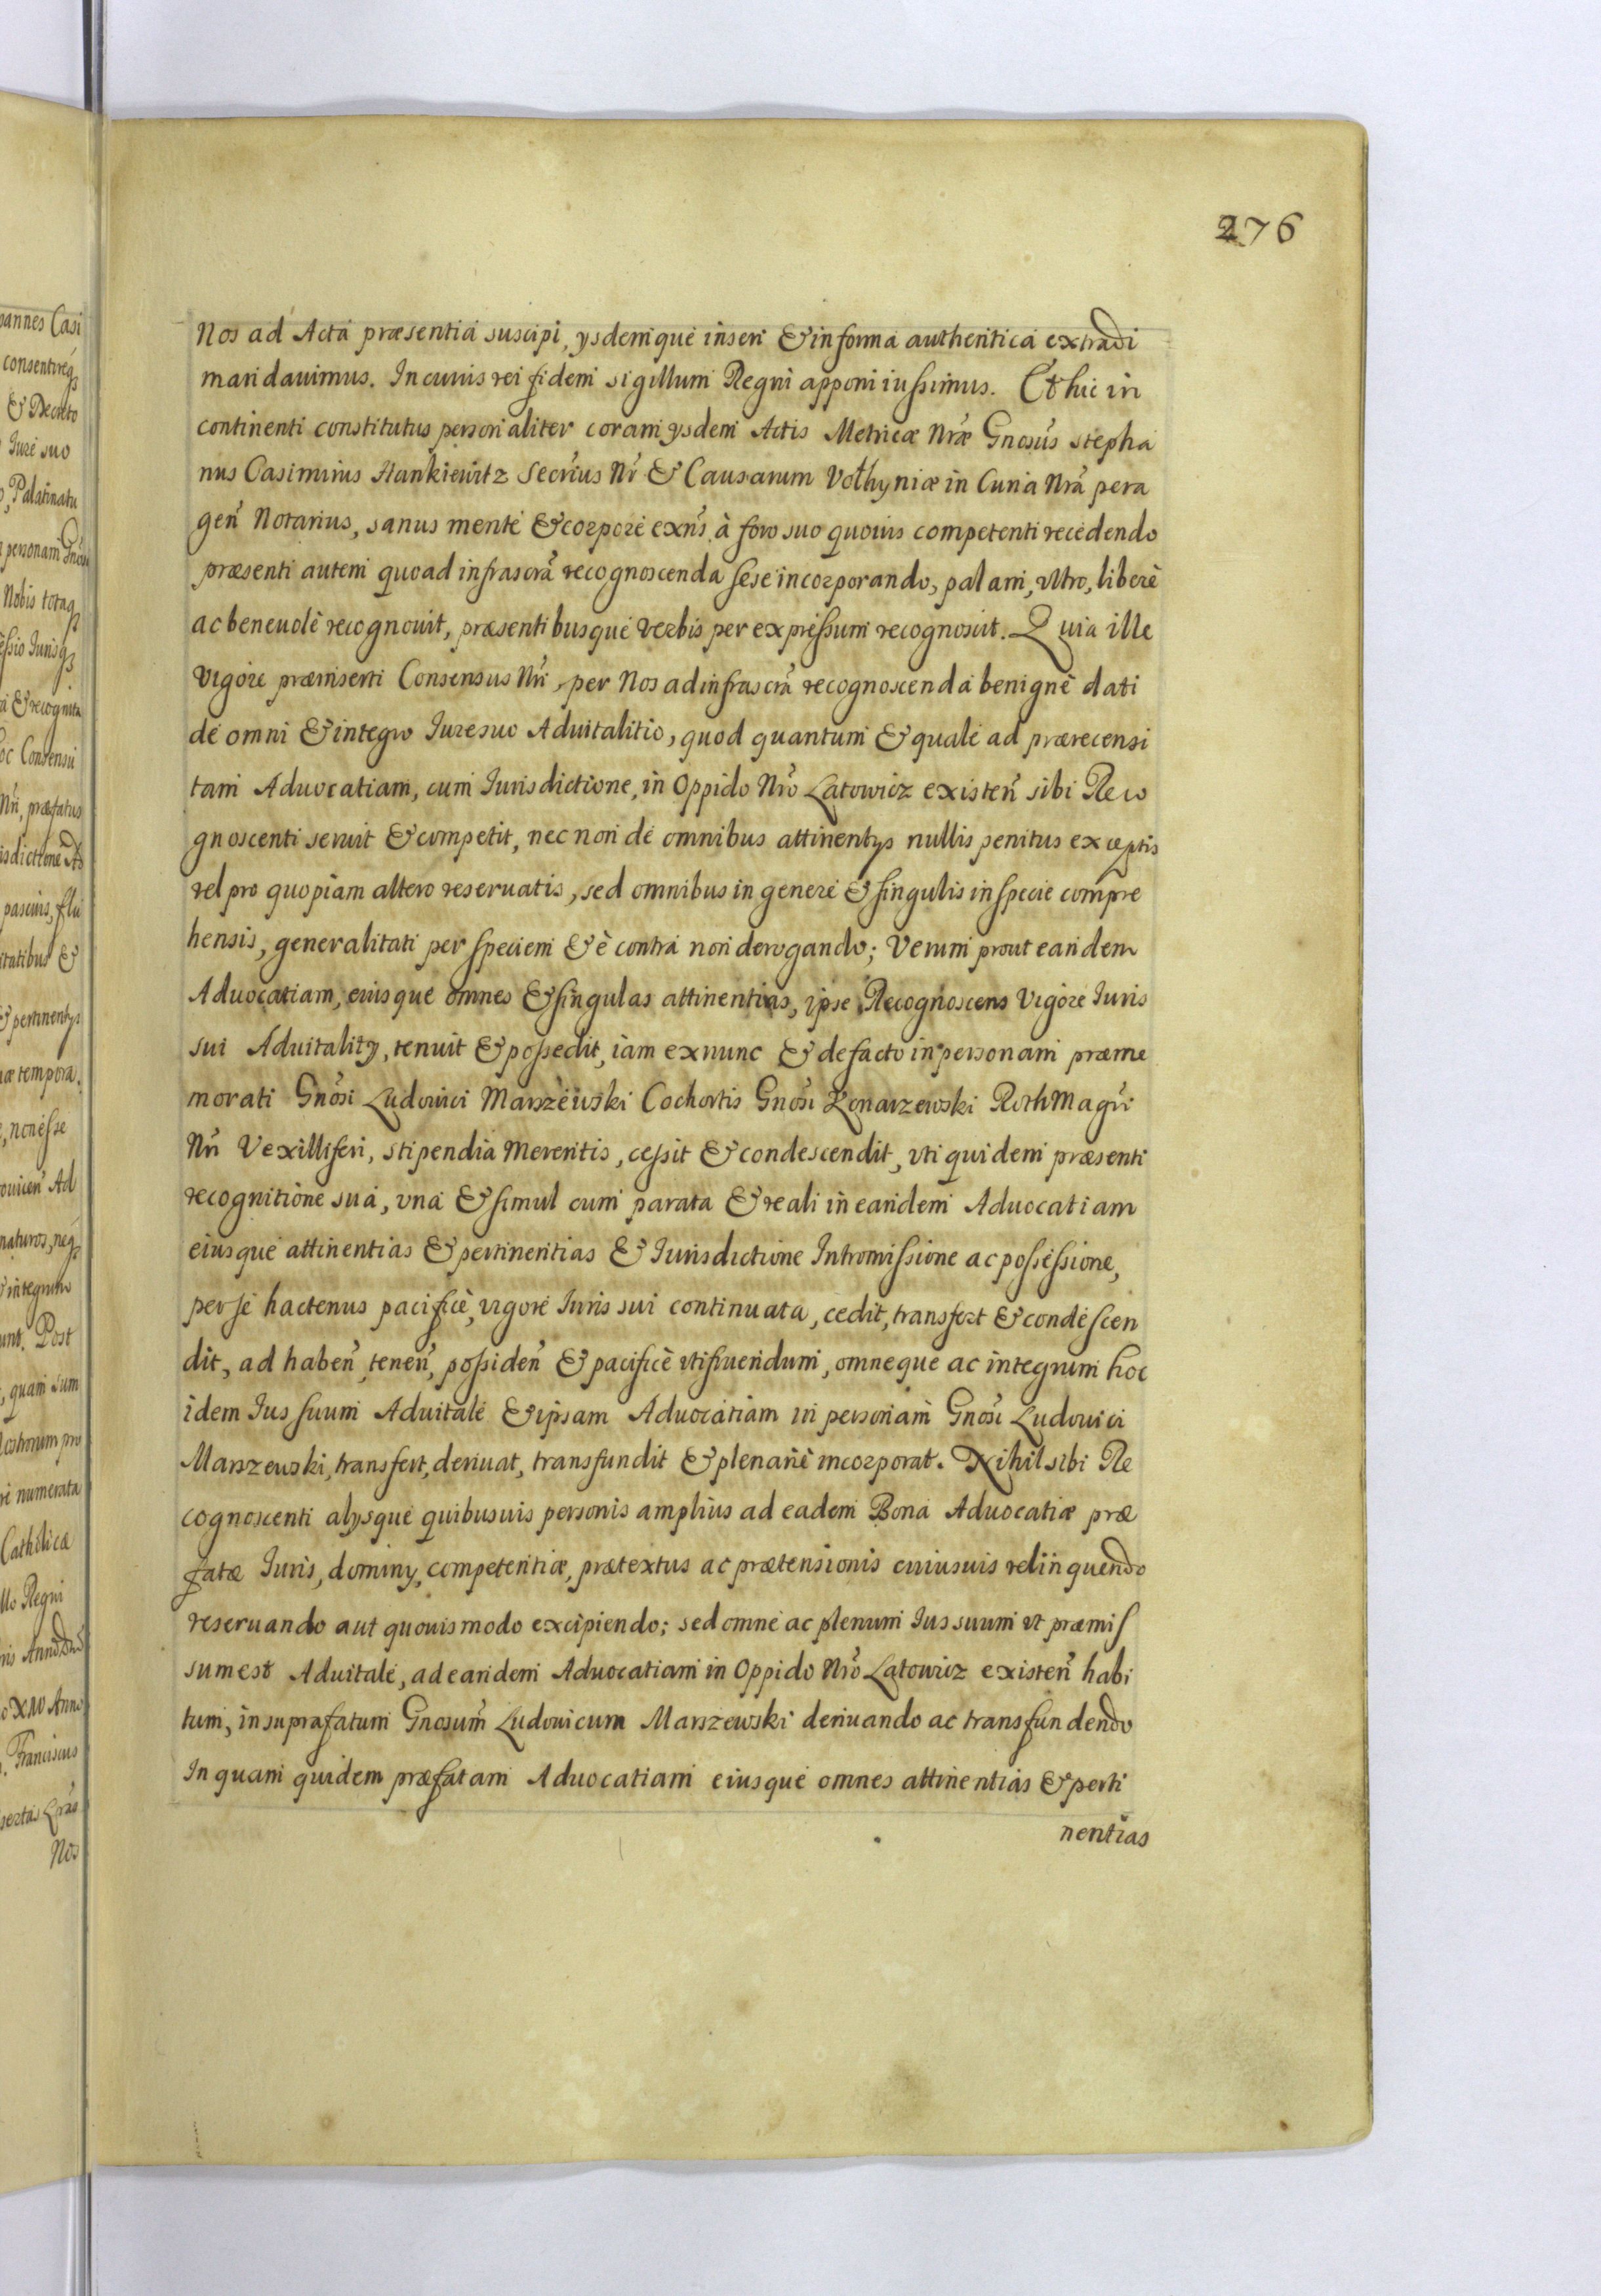 276
Nos ad Acta præsentia suscipi, ysdemque inseri & in forma authentica extradi
mandauimus. In cuius rei fidem sigillum Regni apponi iussimus. Et hic in
continenti constitutus personaliter coram ysdem Actis Metricæ Nræ Gnosus Stepha
nus Casimirus Hankiewitz Secrius Nr & Causarum Volhyniæ in Curia Nra pera
gen Notarius, sanus mente & corpore exns, à foro suo quouis competenti recedendo
præsenti autem quoad infrascra recognoscenda sese incorporando, palam, vltro, liberè
ac beneuolè recognouit, præsentibusque verbis per expressum recognoscit. Quia ille
vigore præinserti Consensus Nri, per Nos ad infrascra recognoscenda benignè dati
de omni & integro Iure suo Aduitalitio, quod quantum & quale ad prærecensi
tam Aduocatiam, cum Iurisdictione, in Oppido Nro Latowicz existen sibi Reco
gnoscenti seruit & competit, nec non de omnibus attinentys nullis penitus exceptis
vel pro quopiam altero reseruatis, sed omnibus in genere & singulis in specie compre
hensis, generalitati per speciem & è contra non derogando; Verum prout eandem
Aduocatiam, eiusque omnes & singulas attinentias, ipse Recognoscens vigore Iuris
sui Aduitality, tenuit & possedit, iam exnunc & de facto in personam præme
morati Gnosi Ludouici Marszewski Cochortis Gnosi Konarzewski RothMagri
Nri Vexilliferi, stipendia Merentis, cessit & condescendit, vti quidem præsenti
recognitione sua, vna & simul cum parata & reali in eandem Aduocatiam
eiusque attinentias & pertinentias & Iurisdictione Intromissione ac possessione,
per se hactenus pacificè, vigore Iuris sui continuata, cedit, transfert & condescen
dit, ad haben, tenen, possiden & pacificè vtifruendum, omneque ac integrum hoc
idem Ius suum Aduitale & ipsam Aduocatiam in personam Gnosi Ludouici
Marszewski, transfert, deriuat, transfundit & plenariè incorporat. Nihil sibi Re
cognoscenti alysque quibusuis personis amplius ad eadem Bona Aduocatiæ præ
fatæ Iuris, dominy, competentiæ, prætextus ac prætensionis cuiusuis relinquendo
reseruando aut quouis modo excipiendo; sed omne ac plenum Ius suum vt præmis
sum est Aduitale, ad eandem Aduocatiam in Oppido Nro Latowicz existen habi
tum, in suprafatum Gnosum Ludouicum Marszewski deriuando ac transfundendo
In quam quidem præfatam Aduocatiam eiusque omnes attinentias & perti
nentias